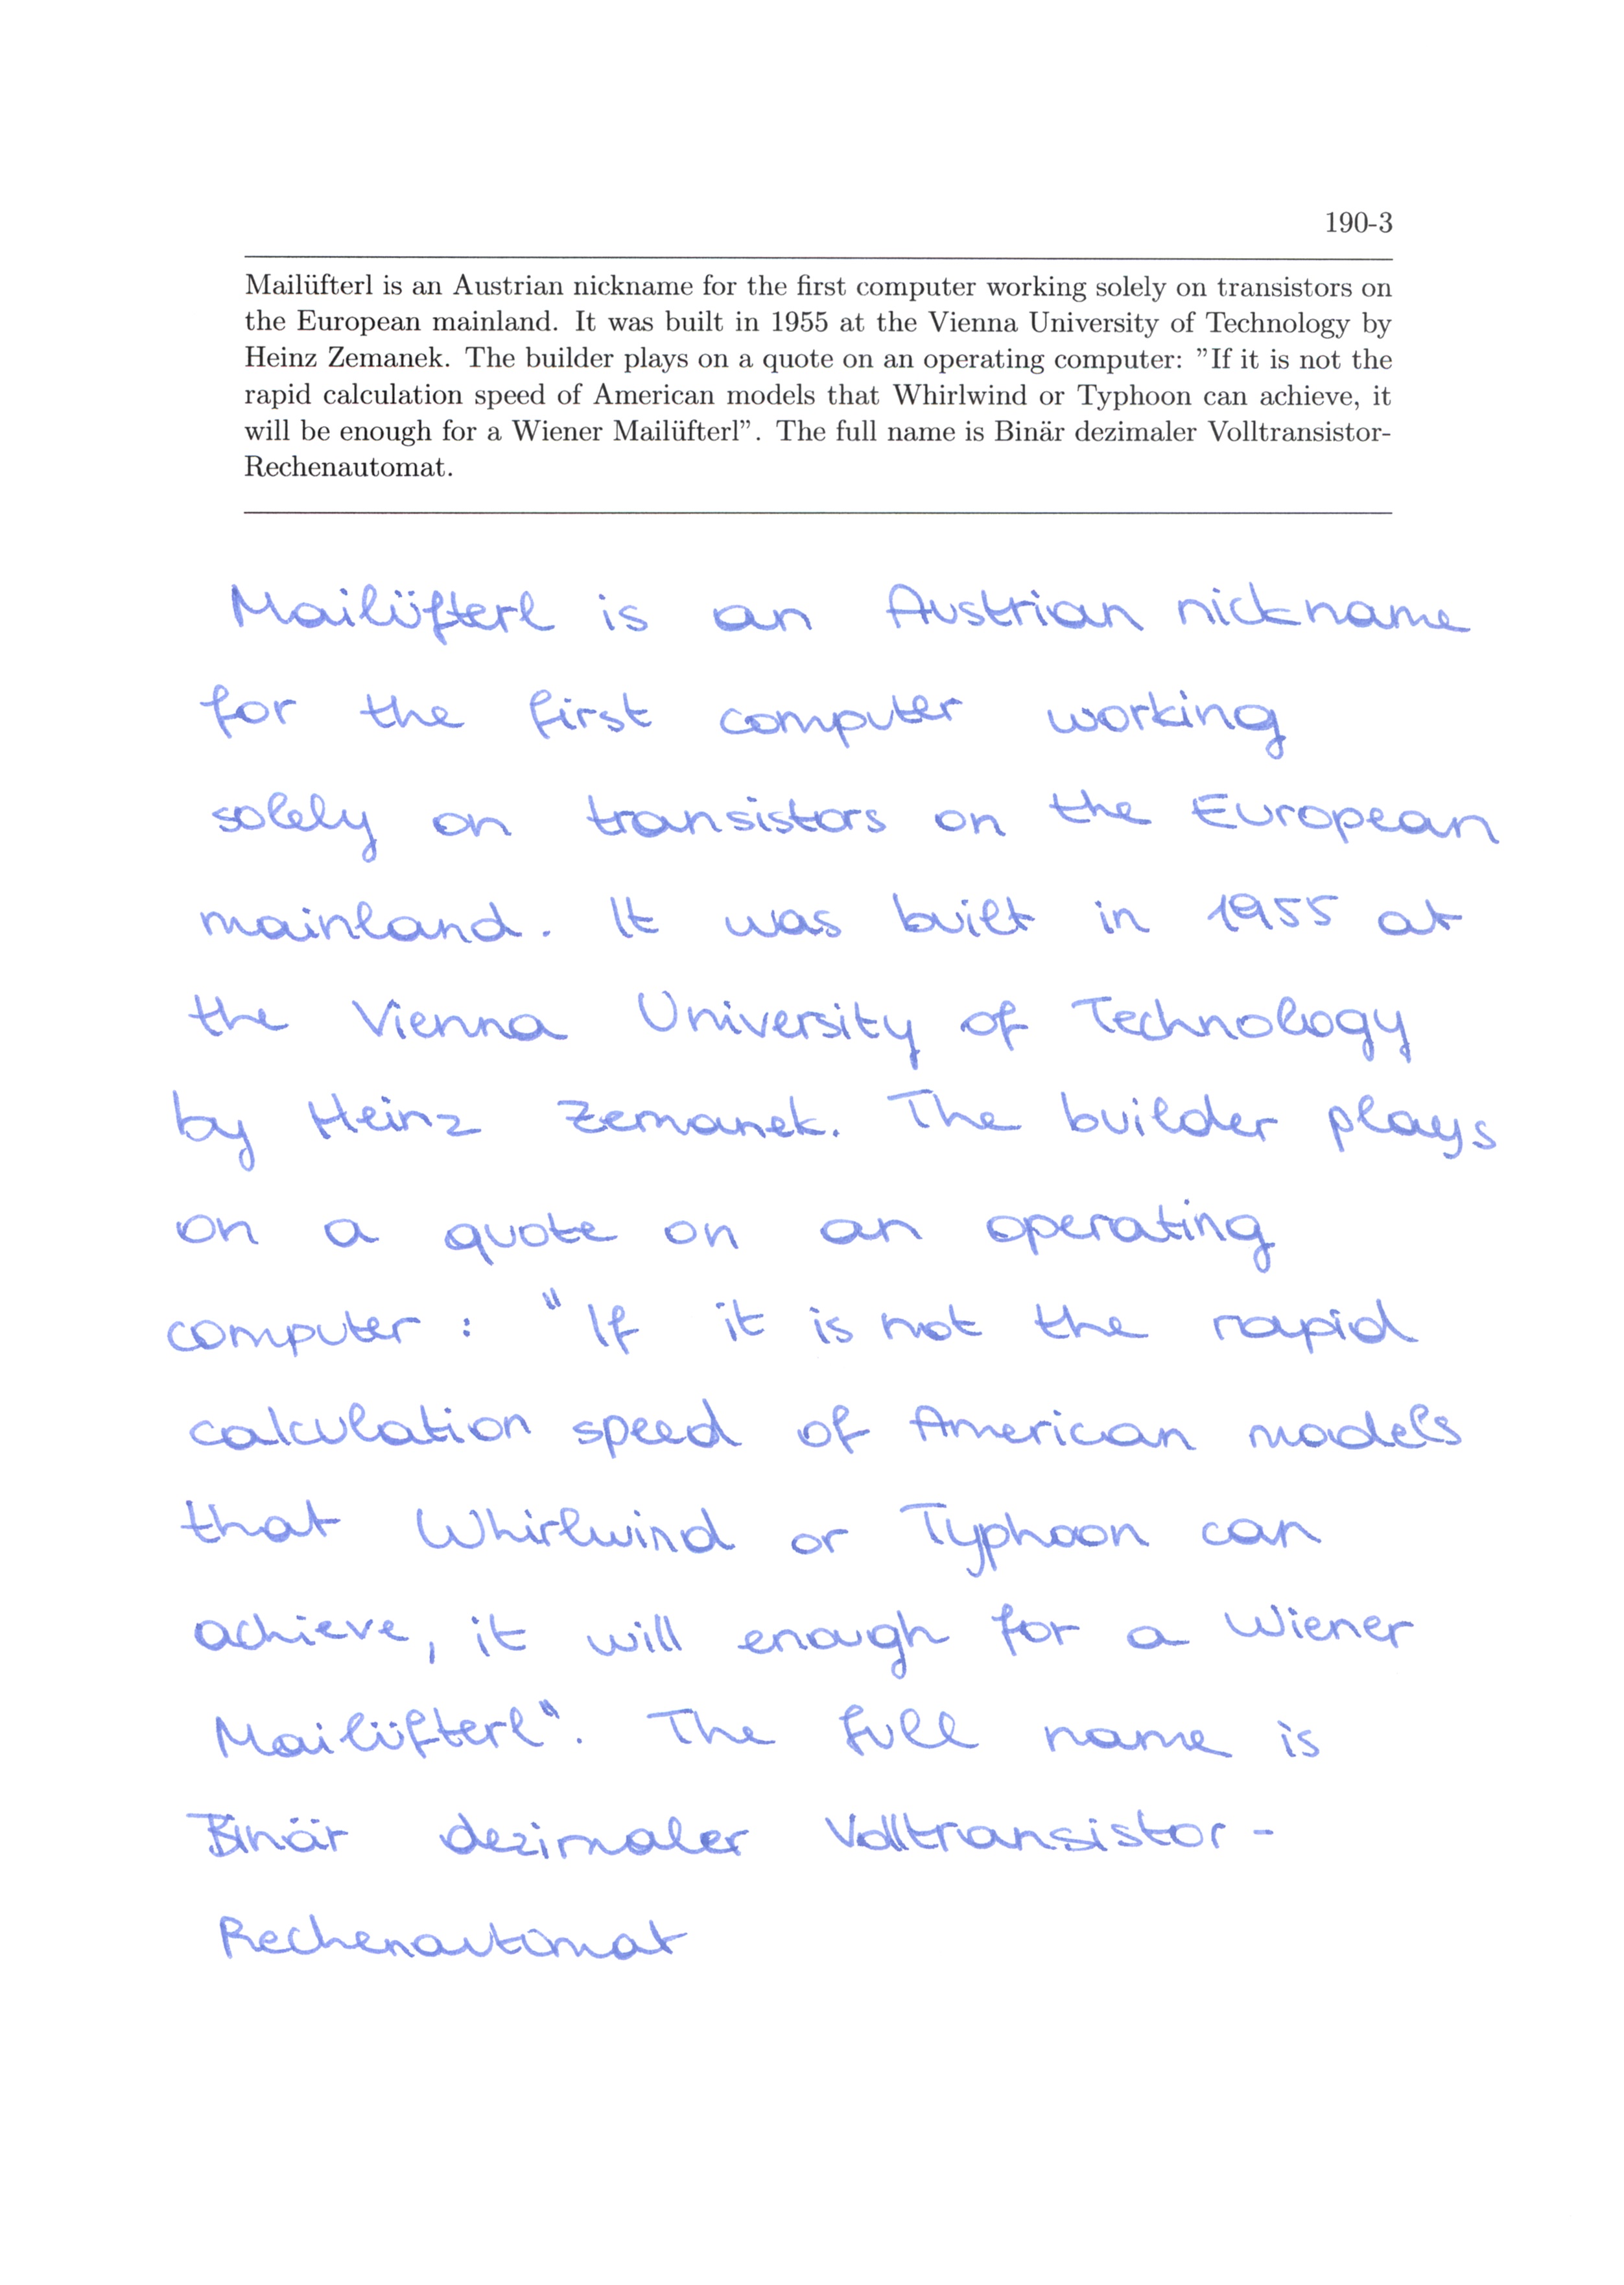 190-3
Mailüfterl is an Austrian nickname for the first computer working solely on transistors on
the European mainland. It was built in 1955 at the Vienna University of Technology by
Heinz Zemanek. The builder plays on a quote on an operating computer: ”If it is not the
rapid calculation speed of American models that Whirlwind or Typhoon can achieve, it
will be enough for a Wiener Mailüfterl”. The full name is Binär dezimaler Volltransistor-
Rechenautomat.
Mailüfterl is an Austrian nickname
for the first computer working
solely on transistors on the European
mainland. It was built in 1955 at
the Vienna University of Technology
by Heinz Zemanek. The builder plays
on a quote on an operating
computer: "If it is not the rapid
calculation speed of American models
that Whirlwind or Typhoon can
achieve, it will enough for a Wiener
Mailüfterl". The full name is
Binär dezimaler Volltransistor-
Rechenautomat